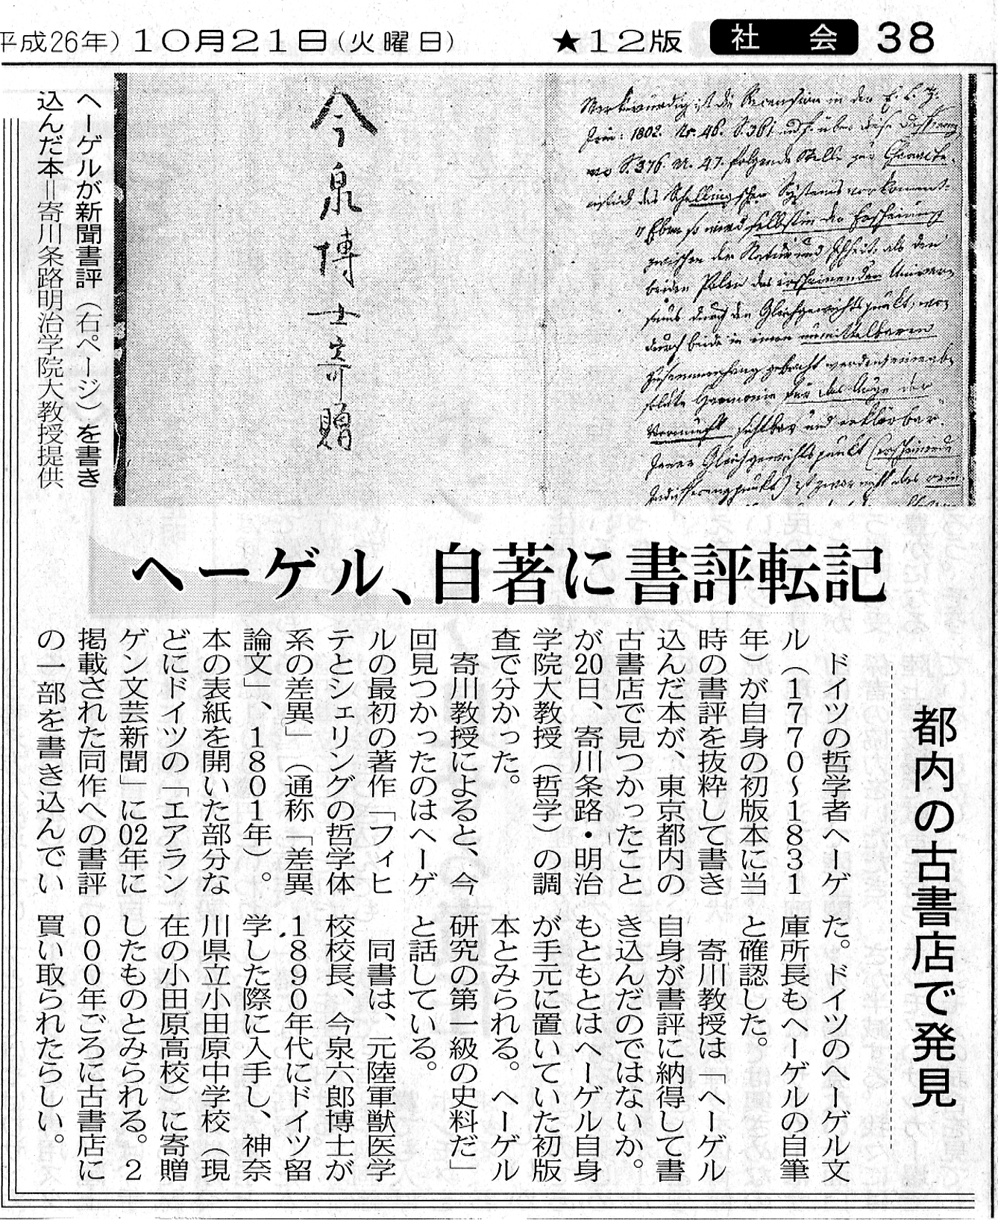 平成26年）10月21日（火曜日）　★12版　社会　38
今泉博士寄贈
ヘーゲルが新聞書評（右ページ）を書き
込んだ本＝寄川条路明治学院大教授提供
ヘーゲル、自著に書評転記
都内の古書店で発見
ドイツの哲学者ヘーゲ
ル（1770〜1831
年）が自身の初版本に当
時の書評を抜粋して書き
込んだ本が、東京都内の
古書店で見つかったこと
が20日、寄川条路・明治
学院大教授（哲学）の調
査で分かった。
寄川教授によると、今
回見つかったのはヘーゲ
ルの最初の著作「フィヒ
テとシェリングの哲学体
系の差異」（通称「差異
論文」、1801年）。
本の表紙を開いた部分な
どにドイツの「エアラン
ゲン文芸新聞」に02年に
掲載された同作への書評
の一部を書き込んでい
た。ドイツのヘーゲル文
庫所長もヘーゲルの自筆
と確認した。
寄川教授は「ヘーゲル
自身が書評に納得して書
き込んだのではないか。
もともとはヘーゲル自身
が手元に置いていた初版
本とみられる。ヘーゲル
研究の第一級の史料だ」
と話している。
同書は、元陸軍獣医学
校校長、今泉六郎博士が
1890年代にドイツ留
学した際に入手し、神奈
川県立小田原中学校（現
在の小田原高校）に寄贈
したものとみられる。2
000年ごろに古書店に
買い取られたらしい。
Merkwürdig ist die Recension in der E. L. Z.
1802. Nr. 46. S. 361
S. 376. N. 47. folgende Stelle zur
des Schellingschen Systems vorkommt
zwischen der Natur und
beiden Polen des erscheinenden Univer-
durch den Gleichgewichtspunkt, wo
durch beide in einen unmittelbaren
Zusammenhang gebracht werden
Harmonie für das Auge der
Vernunft sichtbar und erklärbar.
Jener Gleichgewichtspunkt